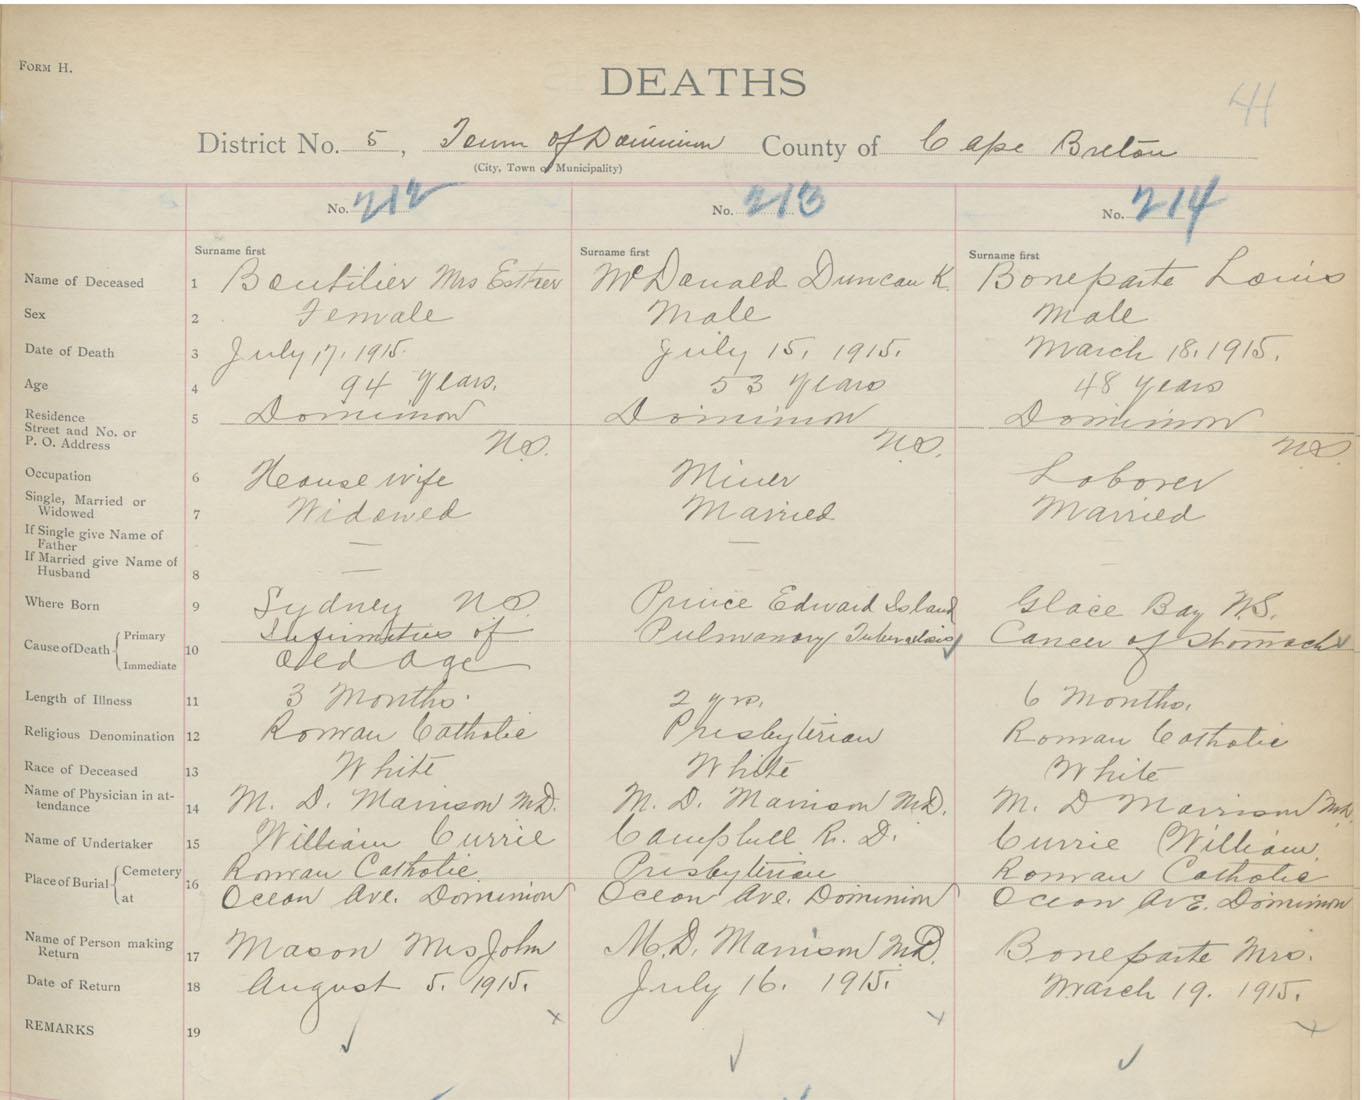 FORM H.
DEATHS
41
District No. 5, Town of Dominion County of Cape Breton
(City, Town of Municipality)
No. 212 No. 213 No. 214
Surname first Surname first Surname first
Name of Deceased 1 Boutilier Mrs Esther McDonald Duncan K. Boneparte Louis
Sex 2 Female Male Male
Date of Death 3 July 17. 1915. July 15, 1915. March 18. 1915.
Age 4 94 Years. 53 Years 48 years
Residence
Street and No. or 5 Dominion Dominion Dominion
P. O. Address N.S. N.S. N.S.
Occupation 6 House wife Miner Laborer
Single, Married or
Widowed 7 Widowed Married Married
If Single give Name of
Father —  —
If Married give Name of
Husband 8 —
Where Born 9 Sydney N.S. Prince Edward Island Glace Bay N.S.
Cause of Death Primary 10 Infirmities of Pulmonary Tuberculosis Cancer of Stomach
Immediate Old Age
Length of Illness 11 3 Months. 2 yrs. 6 Months.
Religious Denomination 12 Roman Catholic Presbyterian Roman Catholic
Race of Deceased 13 White White White
Name of Physician in at-
tendance 14 M. D. Morrison M.D. M. D. Morrison M.D. M. D Morrison M.D.
Name of Undertaker 15 William Currie Campbell R. D. Currie William.
Place of Burial Cemetery 16 Roman Catholic Presbyterian Roman Catholic
at Ocean Ave. Dominion Ocean Ave. Dominion Ocean Ave. Dominion
Name of Person making
Return 17 Mason Mrs John M. D. Morrison M.D. Boneparte Mrs.
Date of Return 18 August 5. 1915. July 16. 1915. March 19. 1915.
REMARKS 19